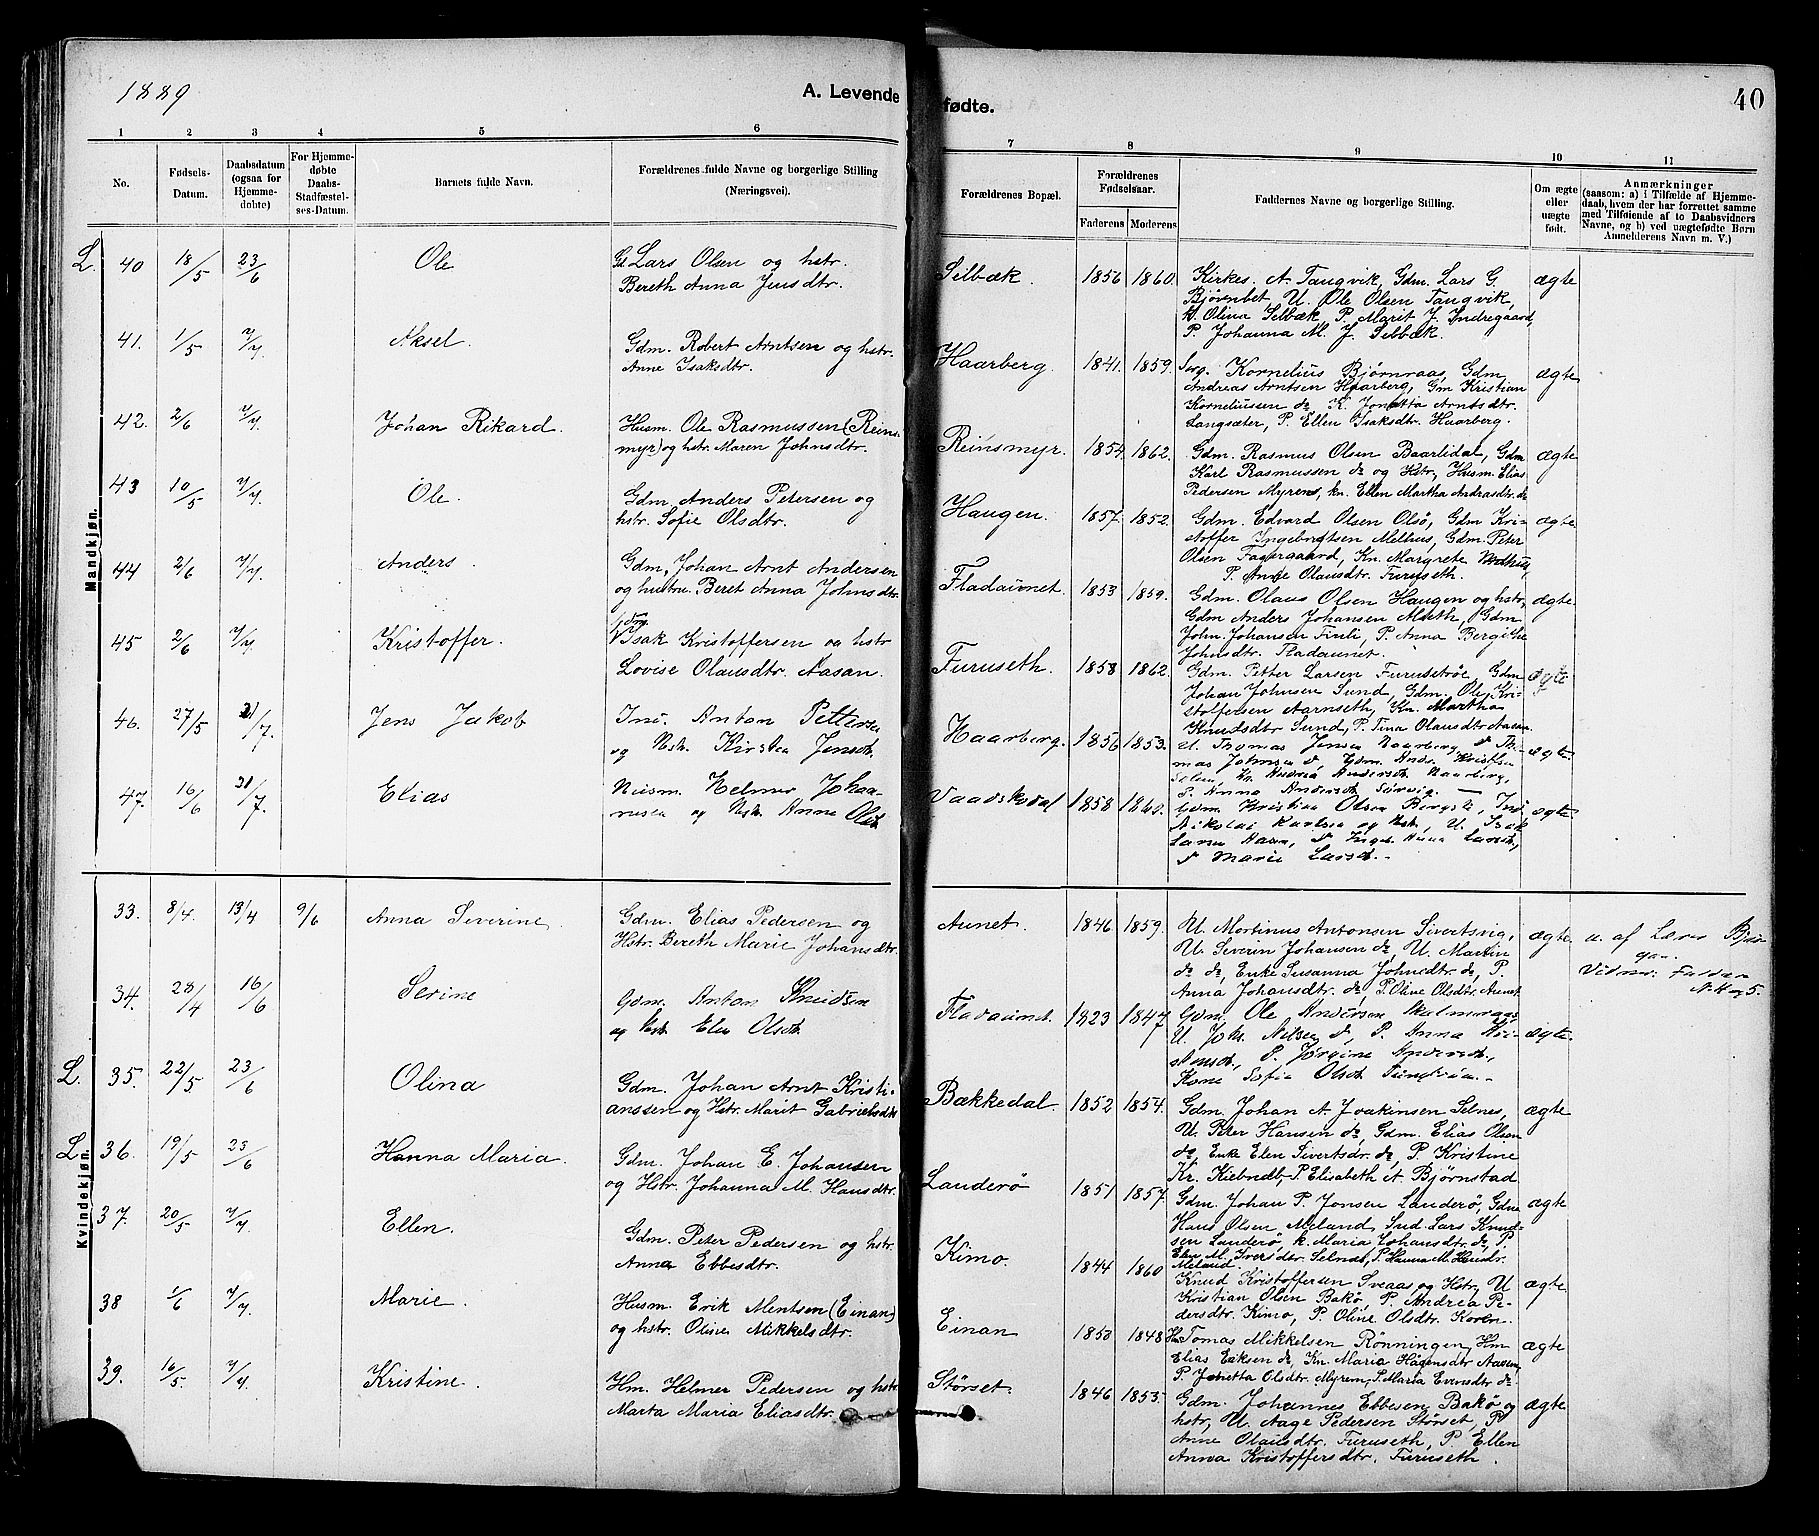 1889
A. Levende fødte.
40
1 2 3 4 5 6 7 8 9 10 11
No.
Fødsels-
Datum.
Daabsdatum
(ogsaa for
Hjemme-
døbte)
For Hjemme-
døbte
Daabs-
Stadfæstel-
ses-Datum.
Barnets fulde Navn.
Forældrenes fulde Navne og borgerlige Stilling
(Næringsvei).
Forældrenes Bopæl.
Forældrenes
Fødselsaar.
Faderens Moderens
Faddernes Navne og borgerlige Stilling.
Om ægte
eller
uægte
født.
Anmærkninger
(saasom: a) i Tilfælde af Hjemme-
daab, hvem der har forrettet samme
med Tilføiende af to Daabsvidners
Navne, og b) ved uægtefødte Børn
Anmelderens Navn m. V.)
Mandkjøn.
L. 40 18/5 23/6 Ole
Lars Olsen og hstr.
Bereth Anna Jensdtr.
Selbæk 1856 1860.
Kirkes. A. Tangvik, Gdm. Lars G.
U. Ole Olsen Tangvik,
Olina Selbæk, P. Marit J. Indregaard,
P. Johanna M. J. Selbæk.
ægte
41. 1/5 7/7. Aksel.
Gdm. Robert Arntsen og hstr.
Anne Isaksdtr.
Haarberg. 1841. 1859.
Kornelius Bjørnraas, Gdm
Andreas Arntsen Haarberg, Gm Kristian
Korneliussen do K. Jonetta Arntsdtr.
Langsæter, P. Ellen Isaksdtr. Haarberg.
ægte
42. 2/6 7/7. Johan Rikard.
Husm. Ole Rasmussen (Reins-
myr) og hstr. Maren Johnsdtr.
Reinsmyr. 1854. 1862.
Gdm. Rasmus Olsen Baarlidal, Gdm
Karl Rasmussen do og Hstr, Husm. Elias
Pedersen Myrens, kn. Ellen Martha Andrasdtr. do
ægte
43 10/5 7/7. Ole.
Gdm. Anders Petersen og
hstr. Sofie Olsdtr.
Haugen. 1857. 1852.
Gdm. Edvard Olsen Olsö, Gdm Kri-
stoffer Ingebrigtsen Melhus, Gdm. Peter
Olsen Fagergaard, Kn. Margrete Melhus,
P. Anne Olausdtr. Furuseth.
ægte
44 2/6 7/7. Anders.
Gdm. Johan Arnt Andersen
og hustru. Beret Anna Johnsdtr.
Fladaunet. 1853 1859.
Gdm. Olaus Olsen Haugen og hstr,
Gdm Anders Johansen Mæth, Gdm.
John Johansen Finli, P. Anna Bergithe
Johnsdtr. Fladaunet.
ægte.
45 2/6 7/7 Kristoffer.
Isak Kristoffersen og hstr
Lovise Olausdtr. Aasan.
Furuseth. 1858 1862.
Gdm. Petter Larsen Furusetrøe, Gdm
Johan Johnsen Sund, Gdm. Ole Kri-
stoffersen Aarnseth, Kn. Martha
Knudsdtr Sund, P. Tina Olausdtr Aasan
ægte
46. 27/5 21/7. Jens Jakob
Ins. Anton Pettersen
og Hstr. Kirsten Jensdt.
Haarberg. 1856 1853.
U. Thomas Jensen Haarberg,
ægte.
47. 16/6 21/7. Elias
Husm. Helmer Johan-
nesen og Hstr. Anne Olsdt.
Vaadskodal 1858 1860.
Gdm Kristian Olsen
Nikolai Karlsen og Hstr, U. Isak
Larsen P. Inge Anna Larsdt,
P Marie Larsdt.
ægte.
Kvindekjøn.
33. 8/4. 13/4 9/6 Anna Severine
Gdm. Elias Pedersen og
Hstr. Bereth Marie Johansdtr.
Aunet. 1846 1859.
U. Mortinus Antonsen Sivertsvig,
U. Severin Johansen do, U. Martin
do do, Enke Susanna Johnsdtr. do, P.
Anna Johansdtr. do, P. Oline Olsdtr. Aunet.
ægte.
u. af Lærer
34. 28/4 16/6 Serine
Gdm. Anton Knudsen
og Hstr. Elen Olsdt.
Fladaunet. 1823 1847.
Gdm. Ole Andersen
U. Johs. Nilsen do, P. Anna
P. Jørgine Andersdt.,
Kone Sofia Olsdt
ægte.
L. 35. 22/5 23/6 Olina
Gdm. Johan Arnt Kristi-
anssen og Hstr. Marit Gabrielsdtr
Bækkedal. 1852 1854.
Gdm. Johan A. Joakimsen Selnes,
U. Peter Hansen do, Gdm. Elias Olsen
do, Enke Elen Sivertsdr. do, P. Kristine
Kr. P. Elisabeth A. Bjørnstad
ægte
L. 36. 19/5 23/6 Hanna Maria.
Gdm. Johan E. Johansen
og Hstr. Johanna M. Hansdtr.
Landerö 1851 1857.
Gdm. Johan P. Jonsen Landerö, Gdm
Hans Olsen Meland, Ind. Lars Knud-
sen Landerö, k. Maria Johansdtr. do, P.
Elen M. Iversdtr. Selnes, P. Hanna M. Hansdr.
Meland.
ægte
37. 20/5 7/7. Ellen.
Gdm. Peter Pedersen og hstr.
Anna Ebbesdtr.
Kimo. 1844 1860
Knud Kristoffersen Sveaas og Hstr, U
Kristian Olsen Bakø P. Andrea Pe-
dersdtr. Kimo, P. Oline Olsdtr. Koren.
ægte.
38 1/6 7/7. Marie.
Husm. Erik Mentsen (Einan)
og hstr. Oline Mikkelsdtr.
Einan 1850 1848
Tomas Mikkelsen Rønningen, Hm
Elias Eriksen do, Kn. Maria Hågensdtr Aasen,
P. Jonetta Olsdtr. Myrem, P. Maria Evensdtr do
ægte
39. 16/5 7/7. Kristine.
Hm. Helmer Pedersen og hstr
Marta Maria Eliasdtr.
Størset. 1846 1853.
Gdm. Johannes Ebbesen Bakø og
hstr, U. Aage Pedersen Størset, P.
Anne Olausdtr. Furuseth, P. Ellen
Anna Kristoffersdtr. Furuseth.
ægte